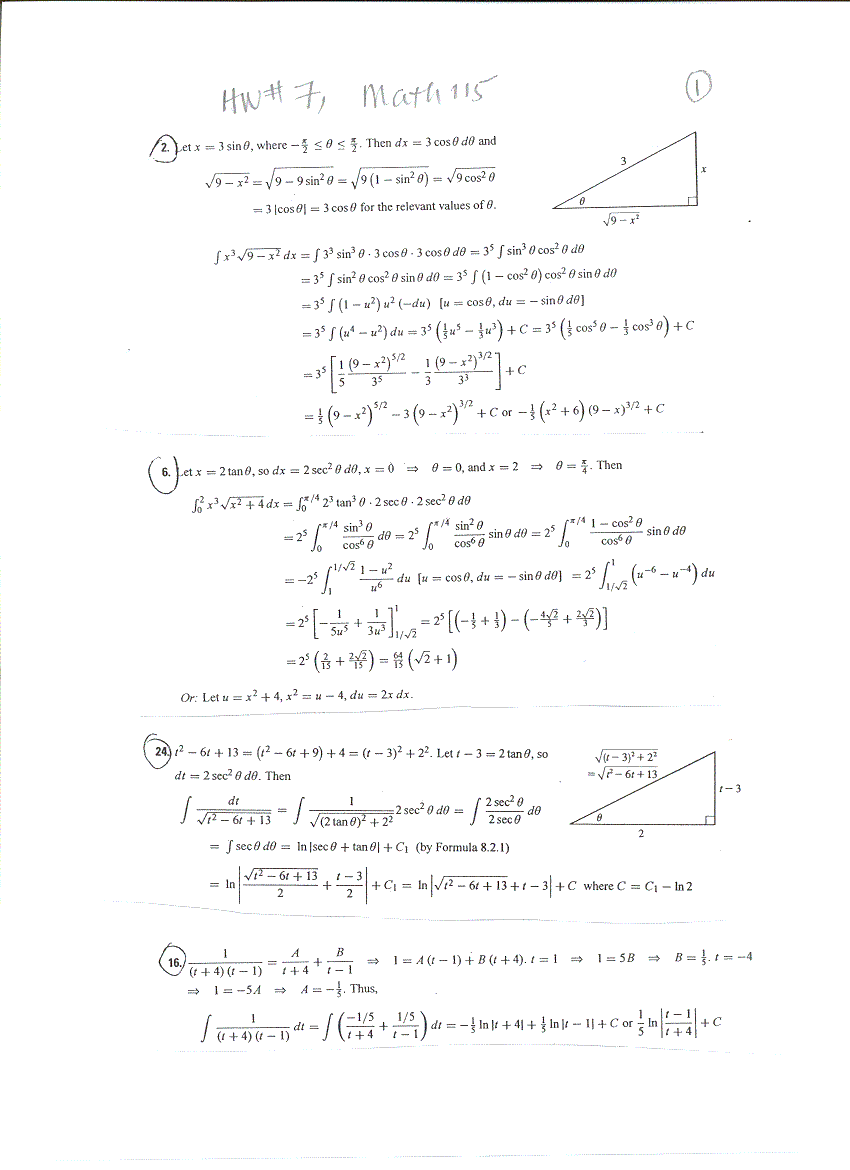 HW# 7, Math 115
1
2. Let x = 3 sin θ, where −π/2 ≤ θ ≤ π/2. Then dx = 3 cos θ dθ and
√(9 − x²) = √(9 − 9 sin² θ) = √(9 (1 − sin² θ)) = √(9 cos² θ)
= 3 |cos θ| = 3 cos θ for the relevant values of θ.
3
x
θ
√(9 − x²)
∫ x³ √(9 − x²) dx = ∫ 3³ sin³ θ · 3 cos θ · 3 cos θ dθ = 3⁵ ∫ sin³ θ cos² θ dθ
= 3⁵ ∫ sin² θ cos² θ sin θ dθ = 3⁵ ∫ (1 − cos² θ) cos² θ sin θ dθ
= 3⁵ ∫ (1 − u²) u² (−du) [u = cos θ, du = − sin θ dθ]
= 3⁵ ∫ (u⁴ − u²) du = 3⁵ (1/5 u⁵ − 1/3 u³) + C = 3⁵ (1/5 cos⁵ θ − 1/3 cos³ θ) + C
= 3⁵ [1/5 (9 − x²)^(5/2)/3⁵ − 1/3 (9 − x²)^(3/2)/3³] + C
= 1/5 (9 − x²)^(5/2) − 3 (9 − x²)^(3/2) + C or −1/5 (x² + 6) (9 − x)^(3/2) + C
6. Let x = 2 tan θ, so dx = 2 sec² θ dθ, x = 0 ⇒ θ = 0, and x = 2 ⇒ θ = π/4. Then
∫₀² x³ √(x² + 4) dx = ∫₀^(π/4) 2³ tan³ θ · 2 sec θ · 2 sec² θ dθ
= 2⁵ ∫₀^(π/4) sin³ θ/cos⁶ θ dθ = 2⁵ ∫₀^(π/4) sin² θ/cos⁶ θ sin θ dθ = 2⁵ ∫₀^(π/4) (1 − cos² θ)/cos⁶ θ sin θ dθ
= −2⁵ ∫₁^(1/√2) (1 − u²)/u⁶ du [u = cos θ, du = − sin θ dθ] = 2⁵ ∫_(1/√2)^1 (u⁻⁶ − u⁻⁴) du
= 2⁵ [−1/(5u⁵) + 1/(3u³)]_(1/√2)^1 = 2⁵ [(−1/5 + 1/3) − (−4√2/5 + 2√2/3)]
= 2⁵ (2/15 + 2√2/15) = 64/15 (√2 + 1)
Or: Let u = x² + 4, x² = u − 4, du = 2x dx.
24. t² − 6t + 13 = (t² − 6t + 9) + 4 = (t − 3)² + 2². Let t − 3 = 2 tan θ, so
dt = 2 sec² θ dθ. Then
√((t − 3)² + 2²)
= √(t² − 6t + 13)
t − 3
θ
2
∫ dt/√(t² − 6t + 13) = ∫ 1/√((2 tan θ)² + 2²) 2 sec² θ dθ = ∫ 2 sec² θ/2 sec θ dθ
= ∫ sec θ dθ = ln |sec θ + tan θ| + C₁ (by Formula 8.2.1)
= ln |√(t² − 6t + 13)/2 + (t − 3)/2| + C₁ = ln |√(t² − 6t + 13) + t − 3| + C where C = C₁ − ln 2
16. 1/((t + 4) (t − 1)) = A/(t + 4) + B/(t − 1) ⇒ 1 = A (t − 1) + B (t + 4). t = 1 ⇒ 1 = 5B ⇒ B = 1/5. t = −4
⇒ 1 = −5A ⇒ A = −1/5. Thus,
∫ 1/((t + 4) (t − 1)) dt = ∫ ((−1/5)/(t + 4) + (1/5)/(t − 1)) dt = −1/5 ln |t + 4| + 1/5 ln |t − 1| + C or 1/5 ln |(t − 1)/(t + 4)| + C